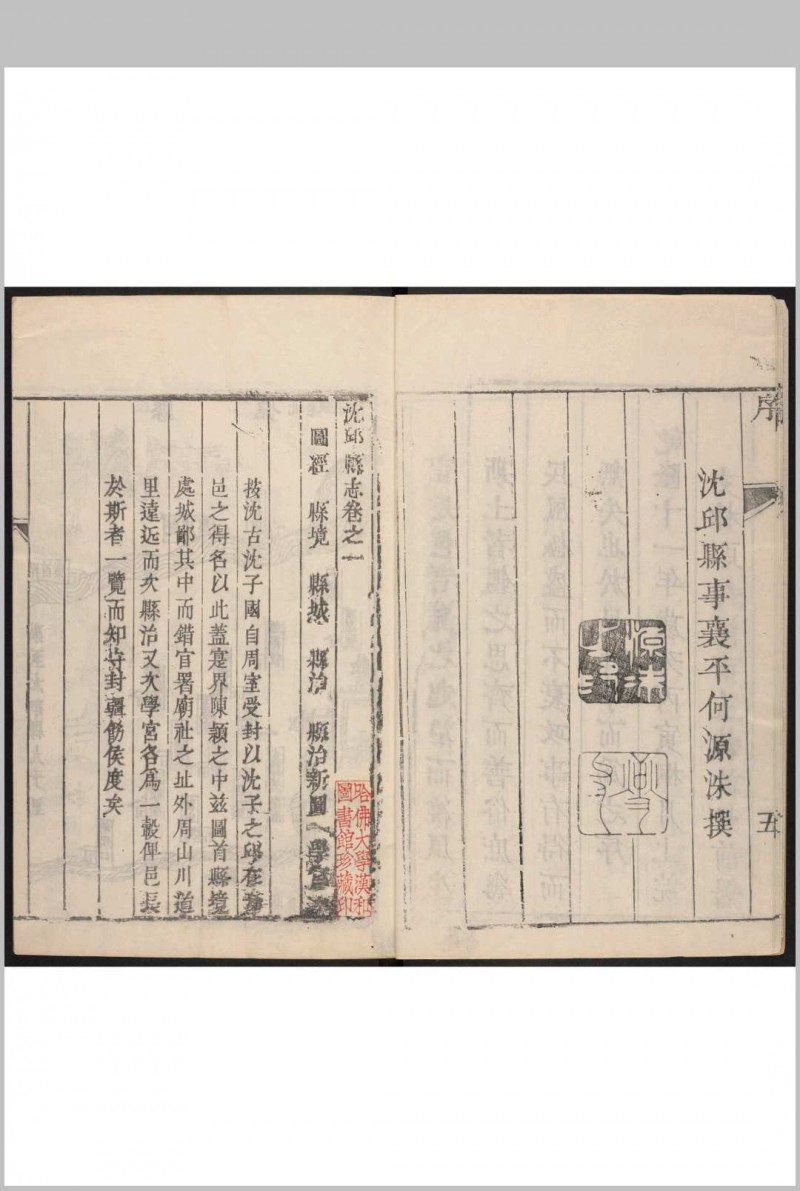 序
沈邱縣事襄平何源洙撰
源洙
五
沈邱縣志卷之一
圖經 縣境 縣城 縣治 縣治新圖 學宮
哈佛大學漢和
圖書館珍藏印
按沈古沈子國自周室受封以沈子之邱在
邑之得名以此蓋寔界陳潁之中玆圖首縣境
處城鄙其中而錯官署廟社之址外周山川道
里遠近而次縣治又次學宮各爲一㲄俾邑長
於斯者一覽而知守封疆飭侯度矣